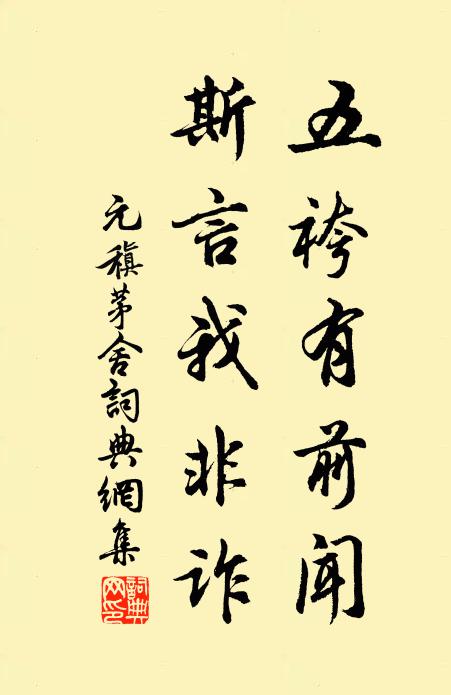 五袴有前闻
斯言我非诈
元稹茅舍詞典網集
詞典網印